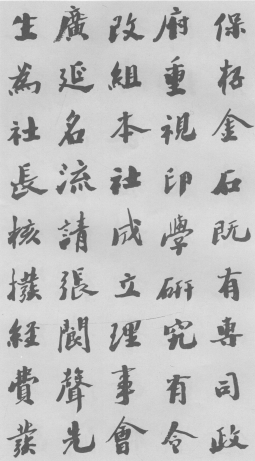 保存金石既有專司政
府重視印學研究有令
改組本社成立理事會
廣延名流請張閬聲先
生為社長核撥經費發